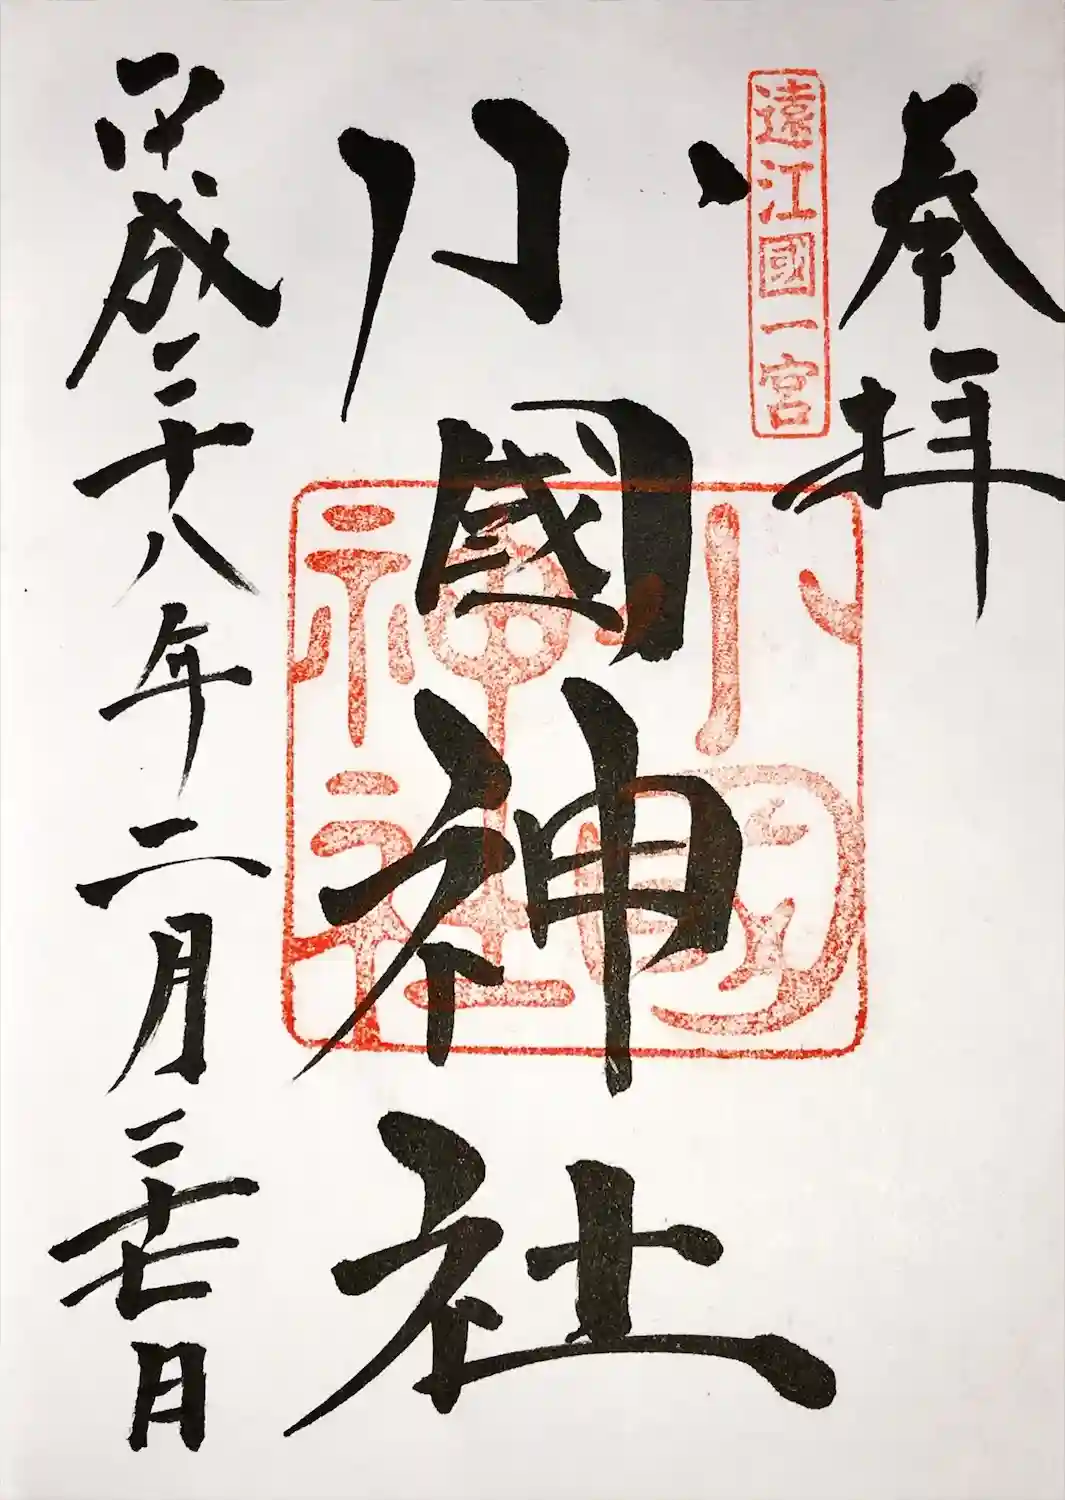 奉拝
遠江國一宮
小國神社
小國
神社
平成二十八年二月二十七日